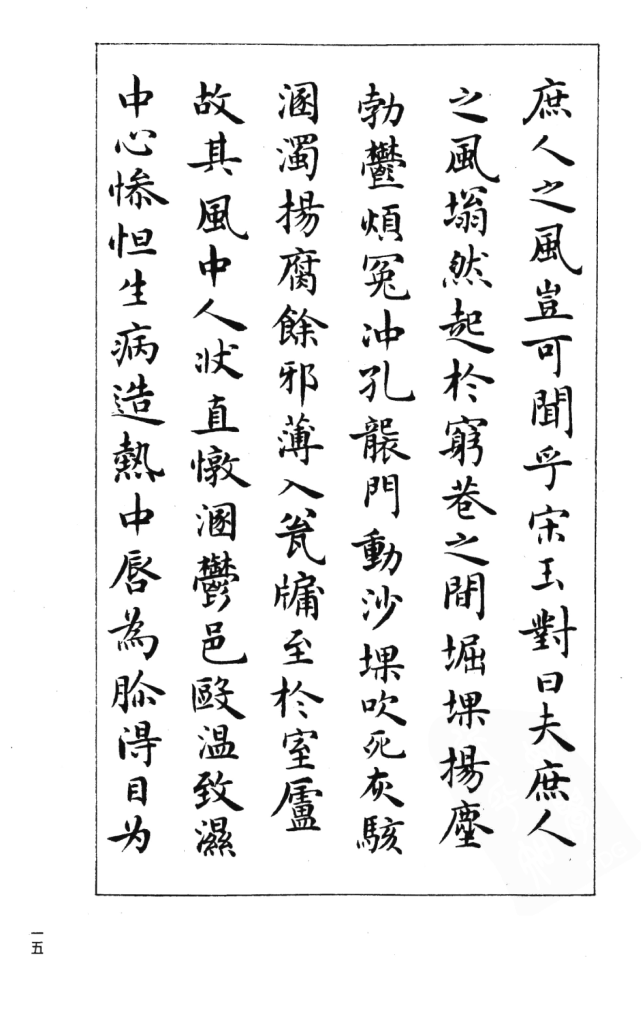 庶人之風豈可聞乎宋玉對曰夫庶人
之風塕然起於窮巷之間堀堁揚塵
勃鬱煩冤沖孔襲門動沙堁吹死灰駭
溷濁揚腐餘邪薄入瓮牖至於室廬
故其風中人狀直憞溷鬱邑毆温致濕
中心慘怛生病造熱中唇為胗得目为
一五